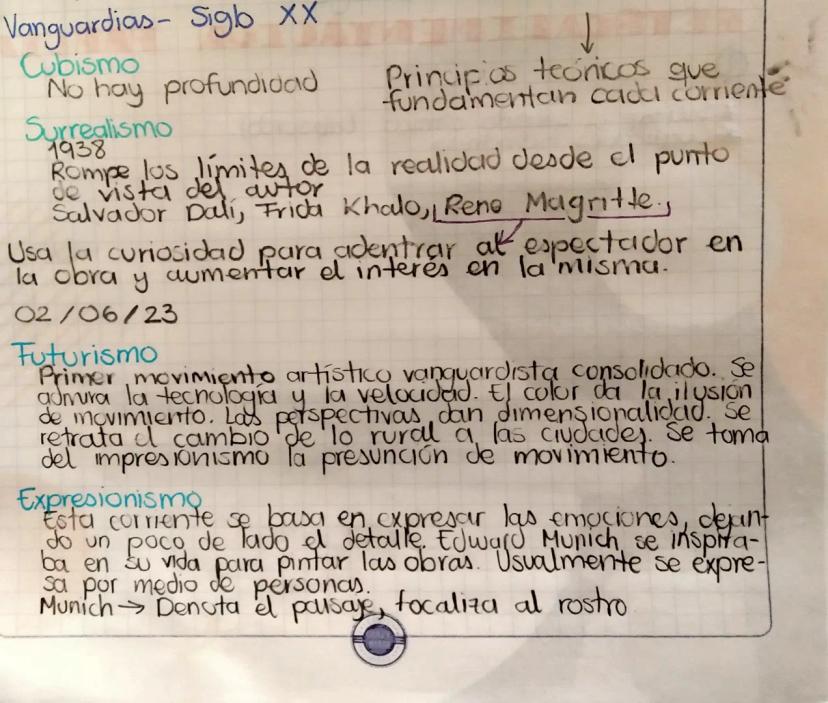 Vanguardias - Siglo XX
Cubismo
No hay profundidad
Principios teóricos que
fundamentan cada corriente
Surrealismo
1938
Rompe los límites de la realidad desde el punto
de vista del autor
Salvador Dalí, Frida Khalo, Rene Magritte.
Usa la curiosidad para adentrar al espectador en
la obra y aumentar el interés en la misma.
02/06/23
Futurismo
Primer movimiento artístico vanguardista consolidado. Se
admira la tecnología y la velocidad. El color da la ilusión
de movimiento. Las perspectivas dan dimensionalidad. Se
retrata el cambio de lo rural a las ciudades. Se toma
del impresionismo la presunción de movimiento.
Expresionismo
Esta corriente se basa en expresar las emociones, dejan-
do un poco de lado el detalle. Edward Munich se inspira-
ba en su vida para pintar las obras. Usualmente se expre-
sa por medio de personas.
Munich → Denota el paisaje, focaliza al rostro